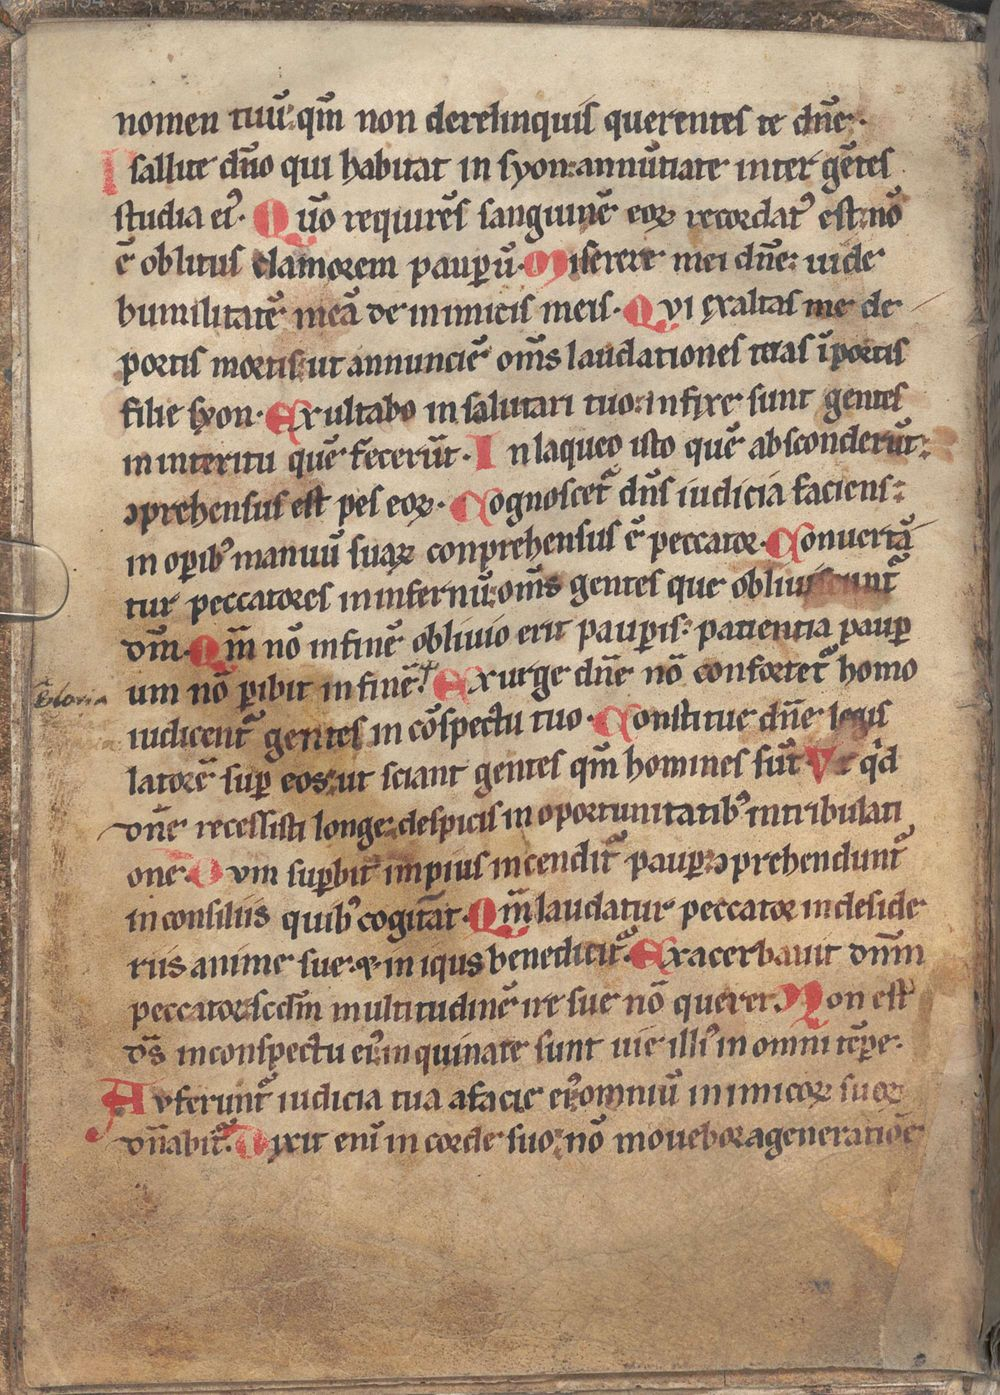 nomen tuū: qm̄ non derelinquis querentes te dn̄e.
Psallite dn̄o qui habitat in syon: annūtiate inter gētes
studia ei᷒. Qūo requirēs sanguinē eoꝝ recordat᷒ est: nō
ē oblitus clamorem pauꝑū. Miserere mei dn̄e: uide
humilitatē meā de inimicis meis. Qvi exaltas me de
portis mortis: ut annunciē om̄s laudationes tuas ī portis
filie syon. Exultabo in salutari tuo: infixe sunt gentes
in interitu quē fecerūt. In laqueo isto quē absconderūt:
ꝯprehensus est pes eoꝝ. Cognoscet᷒ dn̄s iudicia faciens:
in oꝑib᷒ manuū suaꝝ conprehensus ē peccator. Conuertā
tur peccatores in infernū: om̄s gentes que obliuiscunt᷒
dm̄. Qm̄ nō in finē obliuio erit pauꝑis: patientia pauꝑ
um nō ꝑibit in finē. Exurge dn̄e nō confortet᷒ homo
Gloria
iudicent᷒ gentes in cōspectu tuo. Constitue dn̄e legis
latorē suꝑ eos: ut sciant gentes qm̄ homines sūt. Vt qͥd
dn̄e recessisti longe: despicis in oportunitatib᷒ in tribulati
one. Dvm suꝑbit impius incendit᷒ pauꝑ: ꝯprehendunt᷒
in consiliis quib᷒ cogitāt. Qm̄ laudatur peccator in deside
riis anime sue: ⁊ iniqus benedicit᷒. Exacerbauit dn̄m
peccator: scd̄m multitudinē ire sue nō queret. Non est
ds̄ in conspectu ei᷒: inquinate sunt uie illi᷒ in omni tēꝑe.
Avferunt᷒ iudicia tua a facie ei᷒: omniū inimicoꝝ suoꝝ
dn̄abit᷒. Dixit enī in corde suo: nō mouebor a generatiōe